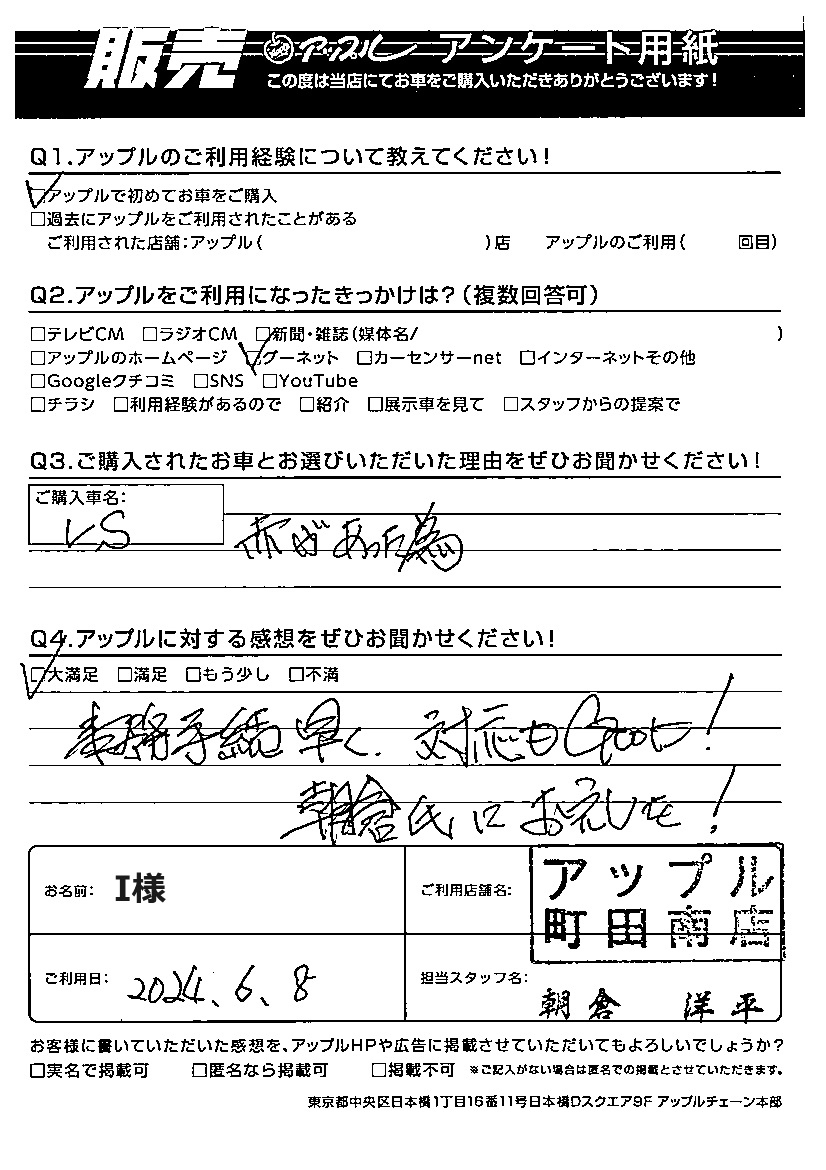 販売 アップル アンケート用紙
この度は当店にてお車をご購入いただきありがとうございます!
Q1.アップルのご利用経験について教えてください!
□アップルで初めてお車をご購入
□過去にアップルをご利用されたことがある
ご利用された店舗:アップル( )店 アップルのご利用( 回目)
Q2.アップルをご利用になったきっかけは?(複数回答可)
□テレビCM □ラジオCM □新聞・雑誌(媒体名/ )
□アップルのホームページ □グーネット □カーセンサーnet □インターネットその他
□Googleクチコミ □SNS □YouTube
□チラシ □利用経験があるので □紹介 □展示車を見て □スタッフからの提案で
Q3.ご購入されたお車とお選びいただいた理由をぜひお聞かせください!
ご購入車名:
LS
赤があった為
Q4.アップルに対する感想をぜひお聞かせください!
□大満足 □満足 □もう少し □不満
事務手続 早く、対応もGood!
朝倉氏にお礼を!
お名前: I様
ご利用店舗名: アップル
町田南店
ご利用日: 2024.6.8
担当スタッフ名: 朝倉 洋平
お客様に書いていただいた感想を、アップルHPや広告に掲載させていただいてもよろしいでしょうか?
□実名で掲載可 □匿名なら掲載可 □掲載不可 ※ご記入がない場合は匿名での掲載とさせていただきます。
東京都中央区日本橋1丁目16番11号日本橋Dスクエア9F アップルチェーン本部